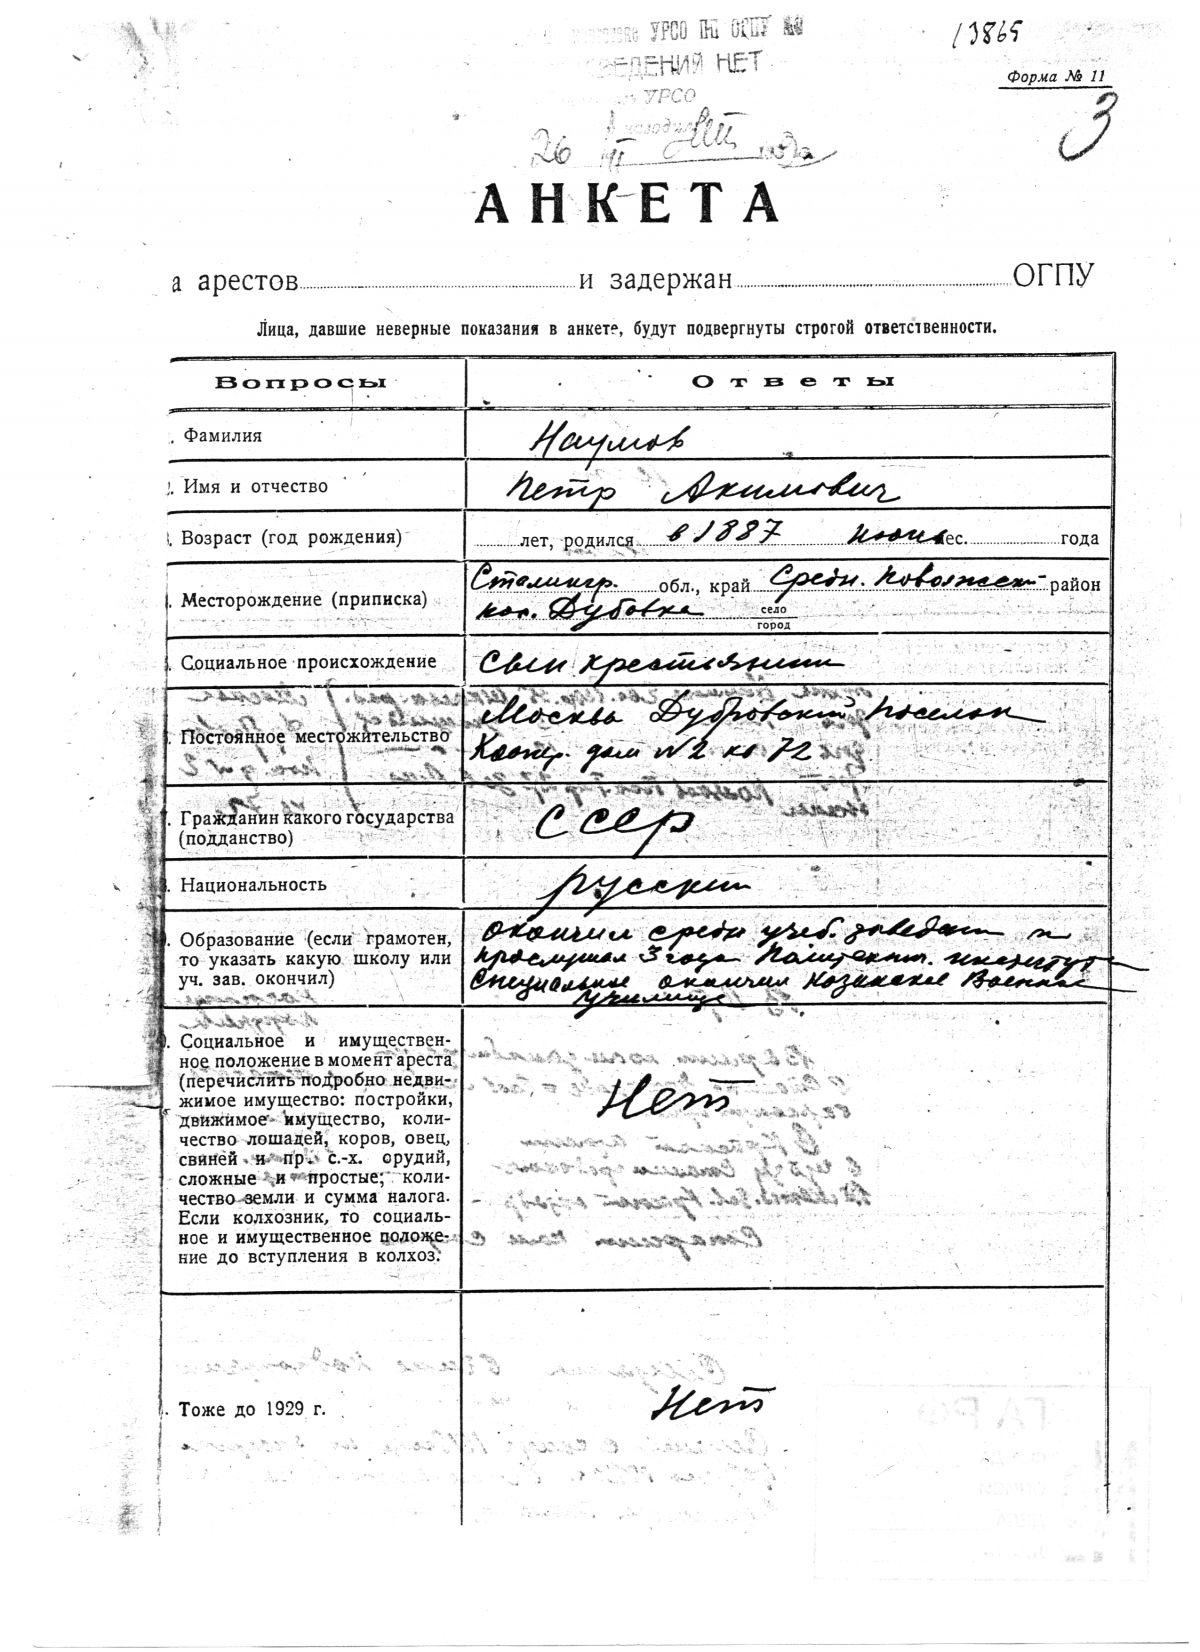 УРСО ПП ОГПУ
СВЕДЕНИЙ НЕТ
УРСО
26 III
13865
Форма № 11
3
АНКЕТА
а арестов и задержан ОГПУ
Лица, давшие неверные показания в анкете, будут подвергнуты строгой ответственности.
Вопросы Ответы
. Фамилия Наумов
. Имя и отчество Петр Акимович
. Возраст (год рождения) лет, родился в 1887 июнь мес. года
. Месторождение (приписка) Сталингр. обл., край Средн. Поволжский район
пос. Дубовка село
город
. Социальное происхождение сын крестьянина
. Постоянное местожительство Москва Дубровский поселок
Коопер. дом N2 кв 72
. Гражданин какого государства (подданство) СССР
. Национальность русский
. Образование (если грамотен, окончил средн учеб. заведение и
то указать какую школу или прослушал 3 года Политехн. института
уч. зав. окончил) Специальное окончил Казанское Военное
училище
. Социальное и имуществен-
ное положение в момент ареста
(перечислить подробно недви-
жимое имущество: постройки,
движимое имущество, коли-
чество лошадей, коров, овец,
свиней и пр. с.-х. орудий,
сложные и простые; коли-
чество земли и сумма налога.
Если колхозник, то социаль-
ное и имущественное положе-
ние до вступления в колхоз.
Нет
. Тоже до 1929 г. Нет